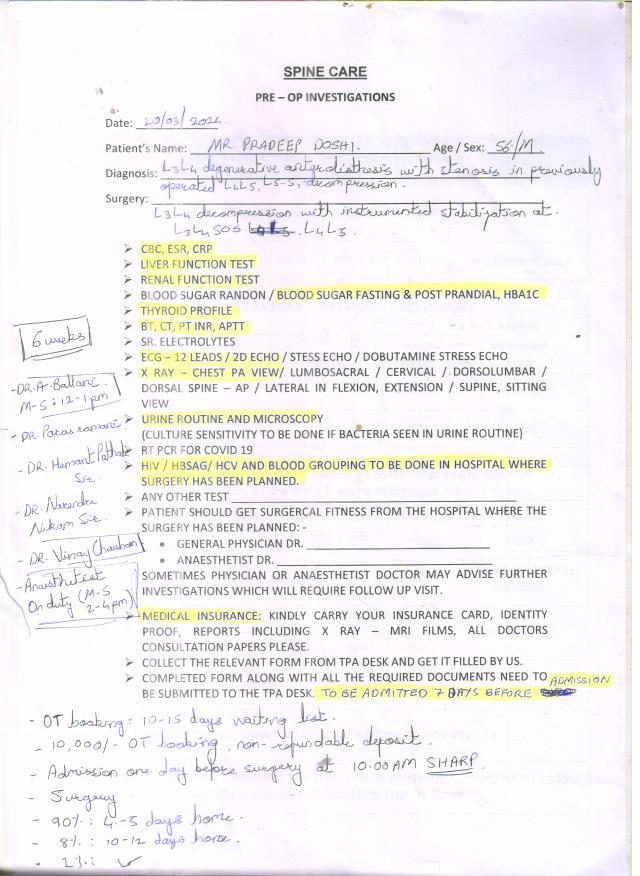 SPINE CARE
PRE – OP INVESTIGATIONS
Date: 20/03/2024.
Patient's Name: MR. PRADEEP DOSHI. Age / Sex: 56/M.
Diagnosis: L3L4 degenerative anterolisthesis with stenosis in previously
operated L4L5, L5-S1 decompression.
Surgery:
L3L4 decompression with instrumented stabilization at
L3L4 SOS L4L5.
➢ CBC, ESR, CRP
➢ LIVER FUNCTION TEST
➢ RENAL FUNCTION TEST
➢ BLOOD SUGAR RANDON / BLOOD SUGAR FASTING & POST PRANDIAL, HBA1C
➢ THYROID PROFILE
➢ BT, CT, PT INR, APTT
➢ SR. ELECTROLYTES
➢ ECG – 12 LEADS / 2D ECHO / STESS ECHO / DOBUTAMINE STRESS ECHO
➢ X RAY – CHEST PA VIEW/ LUMBOSACRAL / CERVICAL / DORSOLUMBAR /
DORSAL SPINE – AP / LATERAL IN FLEXION, EXTENSION / SUPINE, SITTING
VIEW
➢ URINE ROUTINE AND MICROSCOPY
(CULTURE SENSITIVITY TO BE DONE IF BACTERIA SEEN IN URINE ROUTINE)
➢ RT PCR FOR COVID 19
➢ HIV / HBSAG/ HCV AND BLOOD GROUPING TO BE DONE IN HOSPITAL WHERE
SURGERY HAS BEEN PLANNED.
➢ ANY OTHER TEST
➢ PATIENT SHOULD GET SURGERCAL FITNESS FROM THE HOSPITAL WHERE THE
SURGERY HAS BEEN PLANNED: -
• GENERAL PHYSICIAN DR.
• ANAESTHETIST DR.
SOMETIMES PHYSICIAN OR ANAESTHETIST DOCTOR MAY ADVISE FURTHER
INVESTIGATIONS WHICH WILL REQUIRE FOLLOW UP VISIT.
➢ MEDICAL INSURANCE: KINDLY CARRY YOUR INSURANCE CARD, IDENTITY
PROOF, REPORTS INCLUDING X RAY – MRI FILMS, ALL DOCTORS
CONSULTATION PAPERS PLEASE.
➢ COLLECT THE RELEVANT FORM FROM TPA DESK AND GET IT FILLED BY US.
➢ COMPLETED FORM ALONG WITH ALL THE REQUIRED DOCUMENTS NEED TO
BE SUBMITTED TO THE TPA DESK. TO BE ADMITTED 7 DAYS BEFORE ADMISSION
6 weeks
- DR. A. Ballani
M-S: 12-1 pm
- DR.
- DR. Hemant Pathak
Sir.
- DR. Narendra
Nikam Sir.
- DR. Vinay Chauhan
- Anaesthetist
On duty (M-S
2-4pm)
- OT booking: 10-15 days waiting list.
- 10,000/- OT booking, non-refundable deposit.
- Admission one day before surgery at 10:00AM SHARP.
- Surgery
- 90% : 4-5 days home.
- 8% : 10-12 days home.
- 2% :